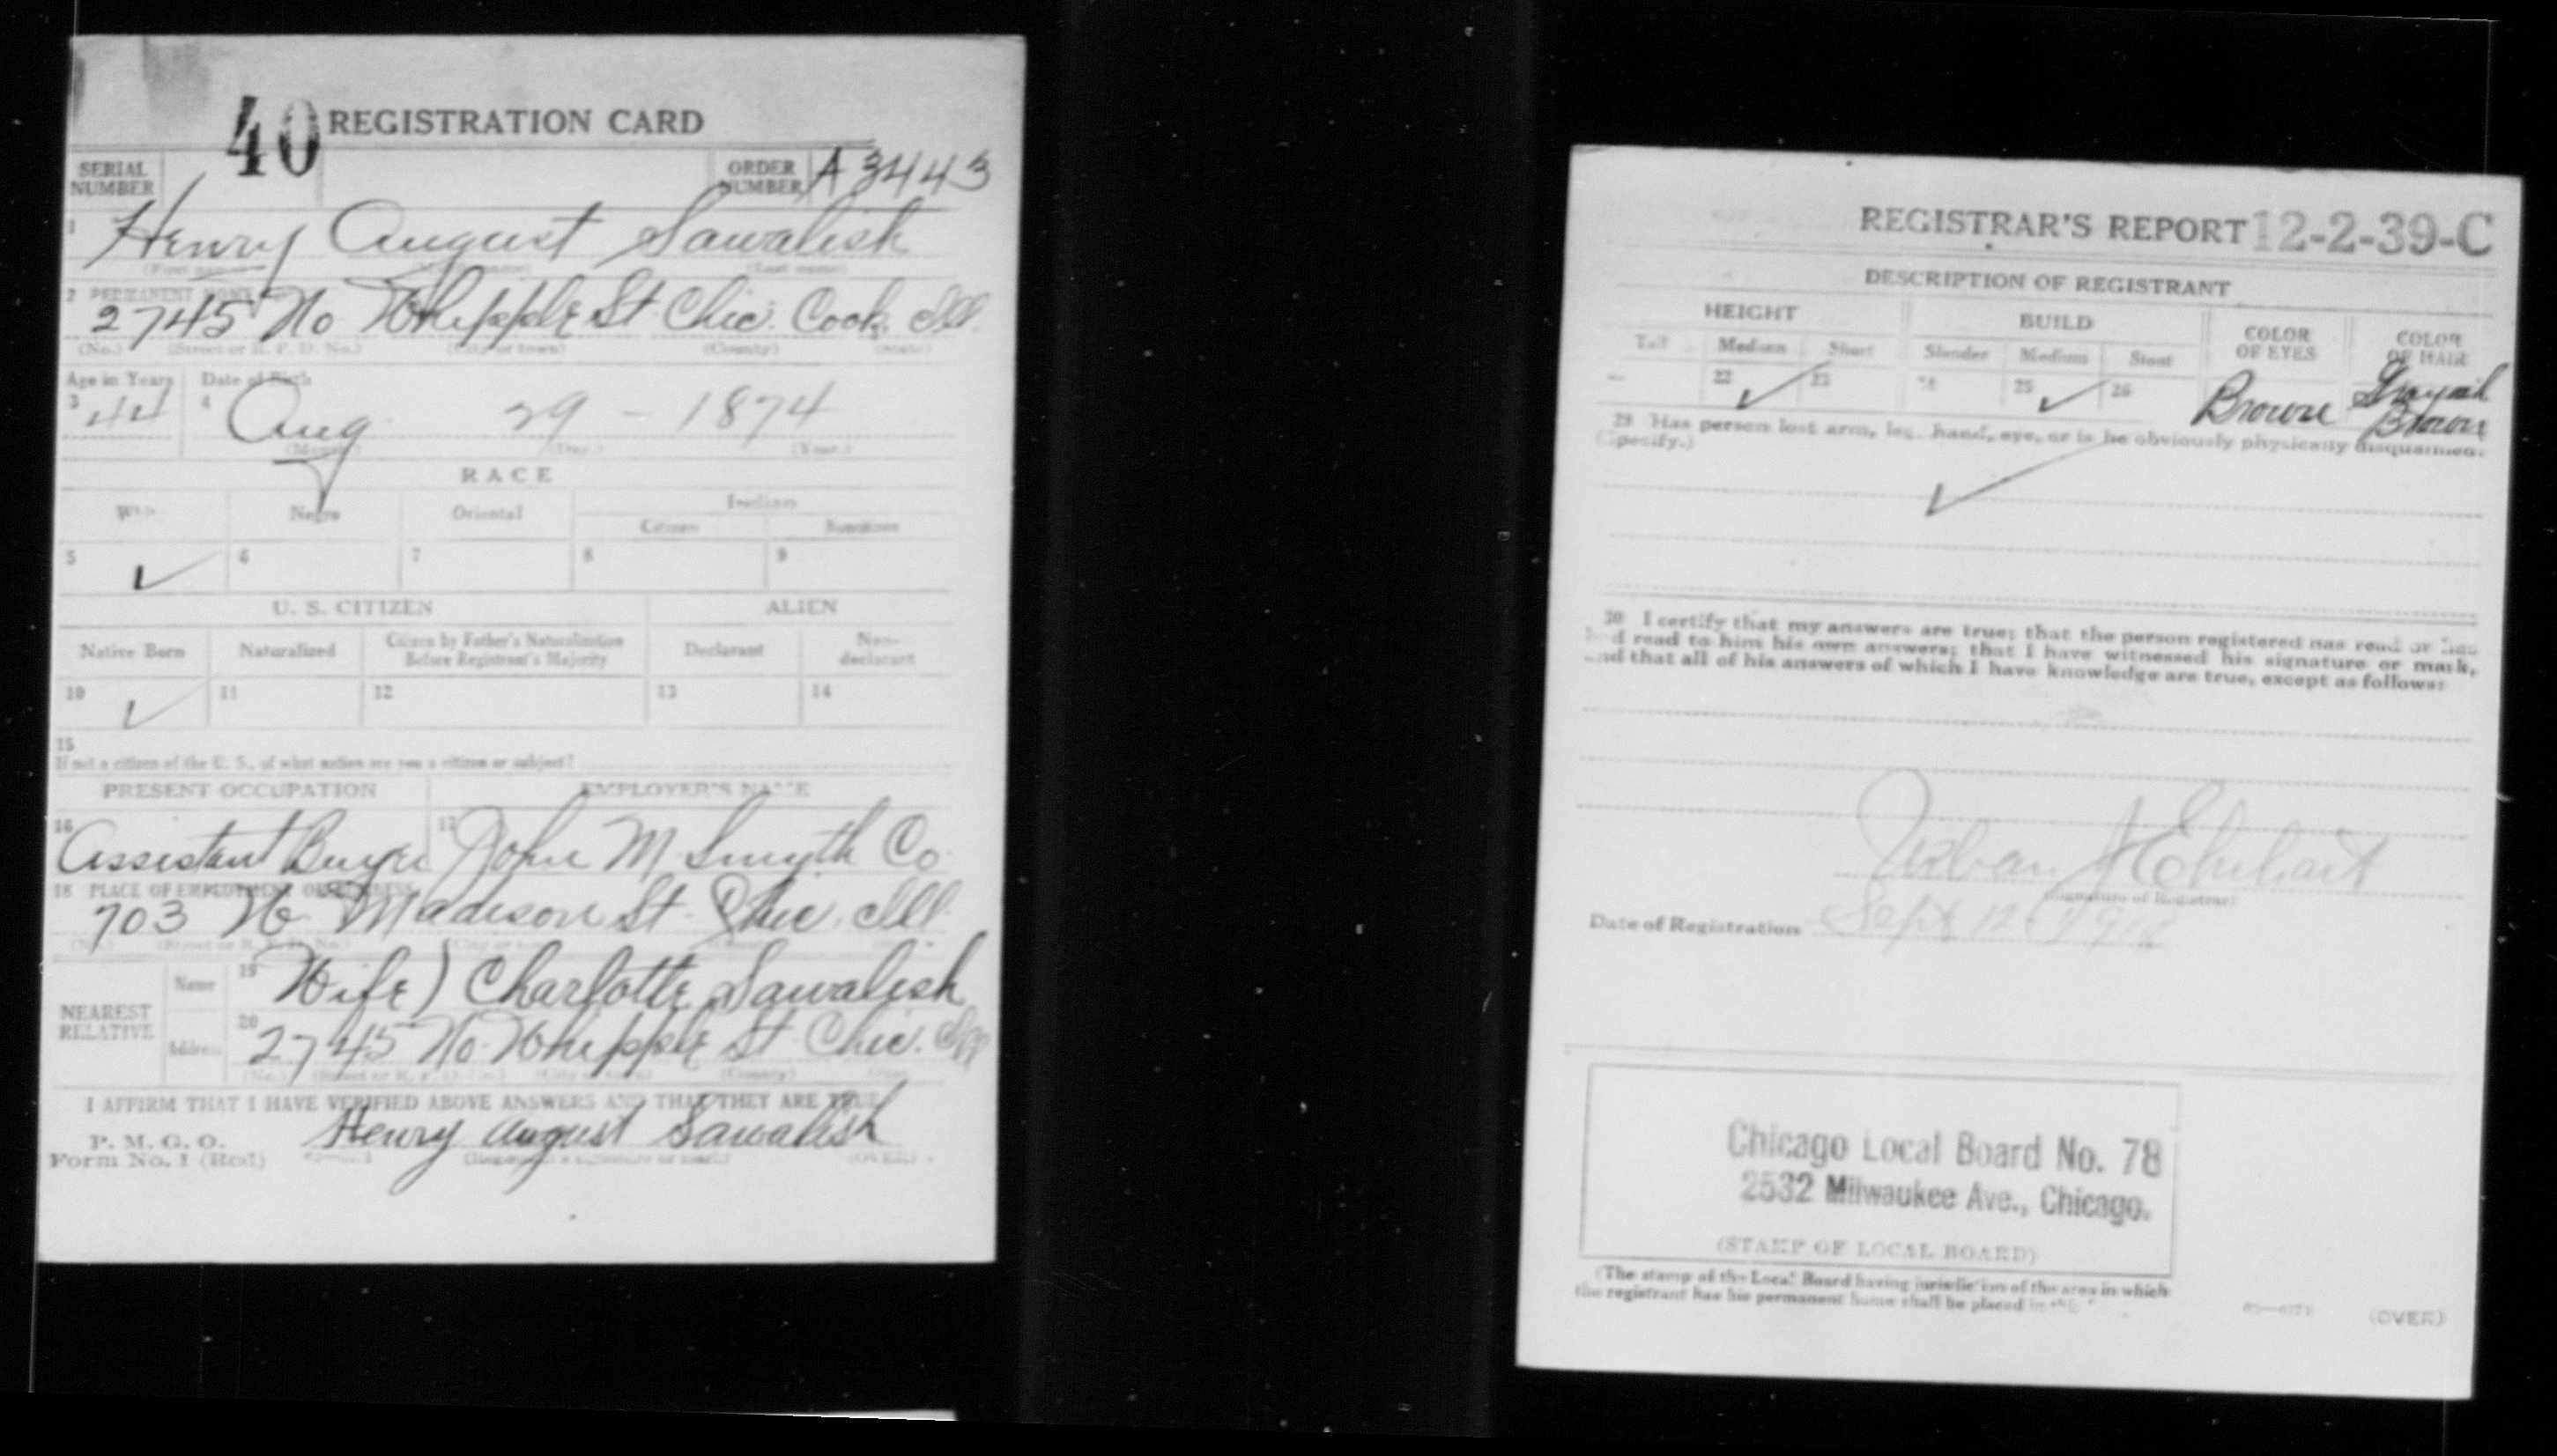 40 REGISTRATION CARD
SERIAL NUMBER
ORDER NUMBER A 3443
1 Henry August Sawalish
(Last name)
2 PERMANENT HOME
2745 No Whipple St Chic. Cook, Ill.
(No.) (Street or R. F. D. No.) (City or town) (County) (State)
Age in Years Date of Birth
3 44 4 Aug 29 - 1874
(Month) (Day) (Year)
RACE
White Negro Oriental Indian
Citizen Noncitizen
5 ✓ 6 7 8 9
U. S. CITIZEN ALIEN
Native Born Naturalized Citizen by Father's Naturalization Before Registrant's Majority Declarant Non-declarant
10 ✓ 11 12 13 14
15
If not a citizen of the U. S., of what nation are you a citizen or subject?
PRESENT OCCUPATION EMPLOYER'S NAME
16 Assistant Buyer 17 John M Smyth Co.
18 PLACE OF EMPLOYMENT OR BUSINESS
703 W. Madison St. Chic. Ill.
NEAREST RELATIVE
Name 19 Wife) Charlotte Sawalish
Address 20 2745 No. Whipple St Chic. Ill
I AFFIRM THAT I HAVE VERIFIED ABOVE ANSWERS AND THAT THEY ARE TRUE
P. M. G. O.
Form No. 1 (Red) Henry August Sawalish
(OVER)
REGISTRAR'S REPORT 12-2-39-C
DESCRIPTION OF REGISTRANT
HEIGHT BUILD COLOR OF EYES COLOR OF HAIR
Tall Medium Short Slender Medium Stout
22 ✓ 23 24 25 ✓ 26 Brown Grayish Brown
29 Has person lost arm, leg, hand, eye, or is he obviously physically disqualified?
(Specify.)
✓
30 I certify that my answers are true; that the person registered has read or has
had read to him his own answers; that I have witnessed his signature or mark,
and that all of his answers of which I have knowledge are true, except as follows:
Urban A Ehrhart
(Signature of Registrar)
Date of Registration Sept 12 - 1918
Chicago Local Board No. 78
2532 Milwaukee Ave., Chicago.
(STAMP OF LOCAL BOARD)
(The stamp of the Local Board having jurisdiction of the area in which
the registrant has his permanent home shall be placed in
(OVER)